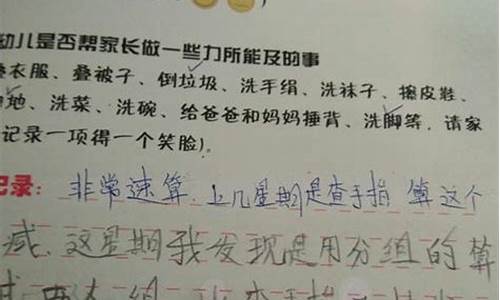 幼儿是否帮家长做一些力所能及的事
衣服、叠被子、倒垃圾、洗手绢、洗袜子、擦皮鞋、
地、洗菜、洗碗、给爸爸和妈妈捶背、洗脚等，请家
记录一项得一个笑脸)。
记录：非常速算，上几星期是查手指算这个
减，这星期我发现是用分组的算